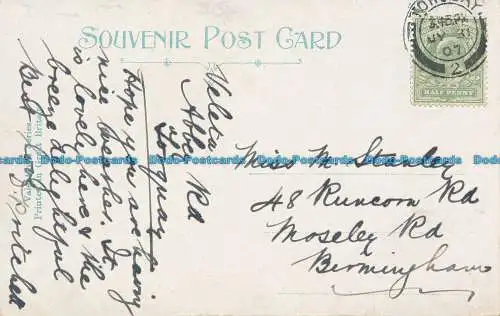 SOUVENIR POST CARD
TORQUAY
3.45 PM
MY 21
07
2
HALF PENNY
Abbey Rd
Torquay
Hope you are having
nice weather. It
is lovely here & the
breeze delightful
Best
Valentine's Series
Printed in Great Britain
Miss M Stanley
48 Runcorn Rd
Moseley Rd
Birmingham
Dodo-Postcards Dodo-Postcards Dodo-Postcards Dodo-Postcards Dodo-Postcards Dodo-Postcards